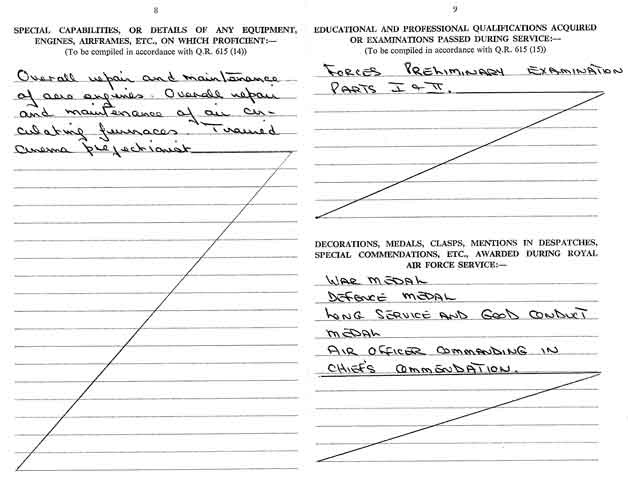 8
SPECIAL CAPABILITIES, OR DETAILS OF ANY EQUIPMENT,
ENGINES, AIRFRAMES, ETC., ON WHICH PROFICIENT:—
(To be compiled in accordance with Q.R. 615 (14))
Overall repair and maintenance
of aero engines. Overall repair
and maintenance of air cir-
culating furnaces. Trained
cinema projectionist
9
EDUCATIONAL AND PROFESSIONAL QUALIFICATIONS ACQUIRED
OR EXAMINATIONS PASSED DURING SERVICE:—
(To be compiled in accordance with Q.R. 615 (15))
FORCES PRELIMINARY EXAMINATION
PARTS I & II.
DECORATIONS, MEDALS, CLASPS, MENTIONS IN DESPATCHES,
SPECIAL COMMENDATIONS, ETC., AWARDED DURING ROYAL
AIR FORCE SERVICE:—
WAR MEDAL
DEFENCE MEDAL
LONG SERVICE AND GOOD CONDUCT
MEDAL
AIR OFFICER COMMANDING IN
CHIEF'S COMMENDATION.